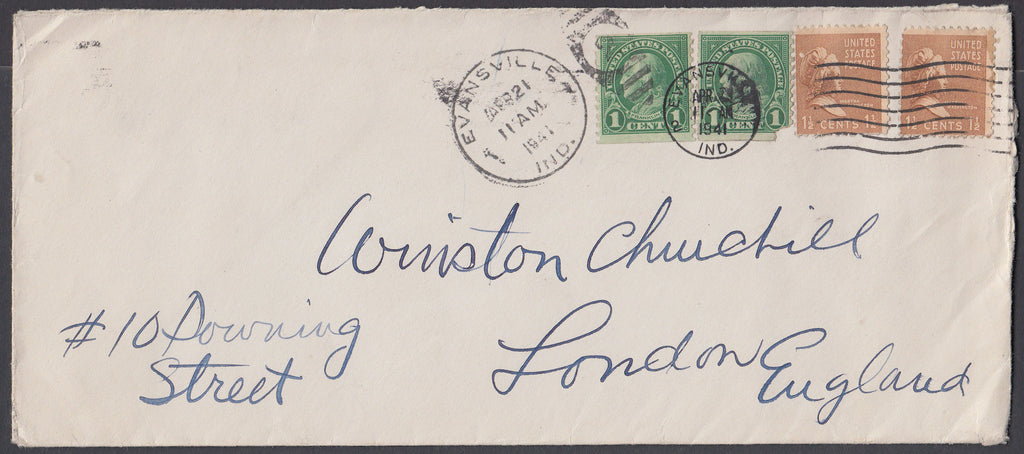 EVANSVILLE
APR 21
11 AM
1941
IND.
UNITED STATES POSTAGE
FRANKLIN
1 CENT 1
UNITED STATES POSTAGE
FRANKLIN
1 CENT 1
EVANSVILLE
APR
11 AM
1941
IND.
UNITED
STATES
POSTAGE
1½ CENTS 1½
UNITED
STATES
POSTAGE
1½ CENTS 1½
Winston Churchill
#10 Downing
Street
London England